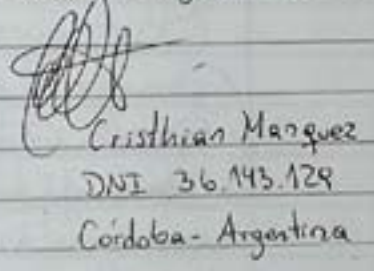 Cristhian Marquez
DNI 36.143.129
Córdoba - Argentina